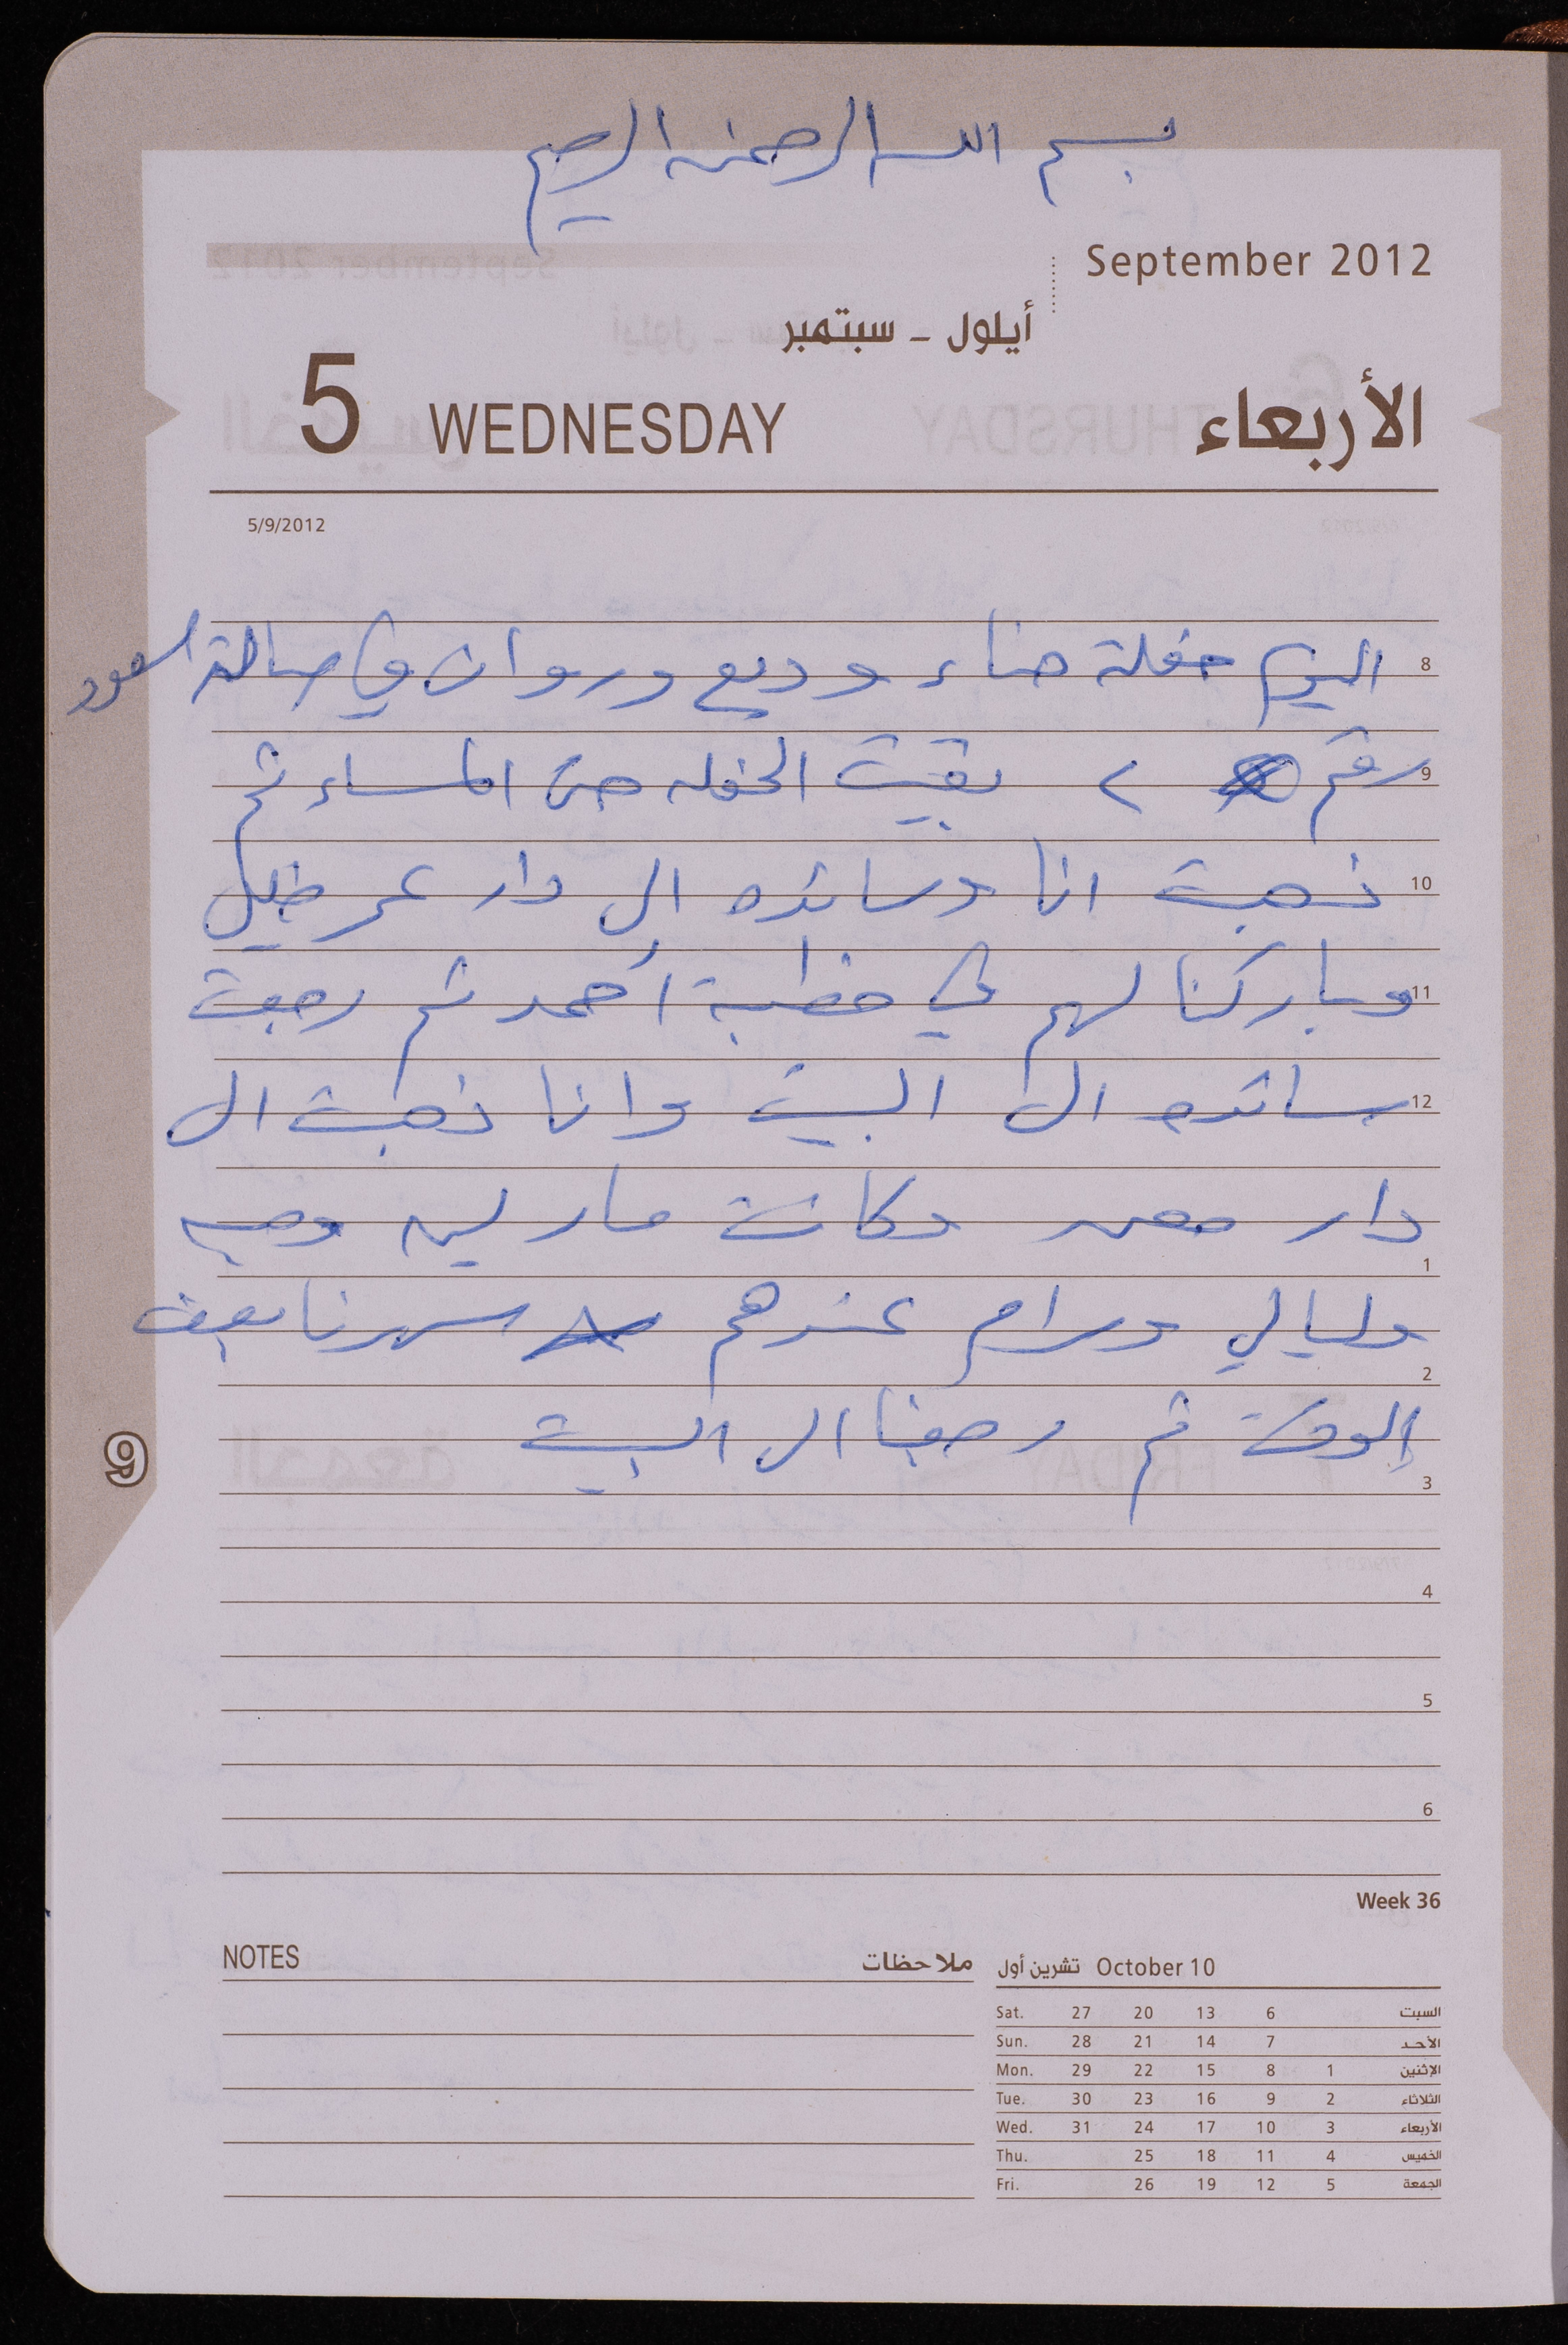 بسم الله الرحمن الرحيم
September 2012
أيلول - سبتمبر
5 WEDNESDAY الأربعاء
5/9/2012
8 اليوم حفلة هناء وديع وروان في صالة السعود
9 رقم ٢ بقيت الحفله حتى المساء ثم
10 ذهبت انا وسائده الى دار عمر خليل
11 وباركنا لهم في خطبة أحمد ثم رجعت
12 سائده الى البيت وانا ذهبت الى
دار معن وكانت مارلين وهبه
1
وليالي ورام عندهم سهرنا بعض
2
الوقت ثم رجعنا الى البيت
3
4
5
6
9
Week 36
NOTES ملاحظات
October 10 تشرين أول
Sat. 27 20 13 6 السبت
Sun. 28 21 14 7 الأحد
Mon. 29 22 15 8 1 الإثنين
Tue. 30 23 16 9 2 الثلاثاء
Wed. 31 24 17 10 3 الأربعاء
Thu. 25 18 11 4 الخميس
Fri. 26 19 12 5 الجمعة